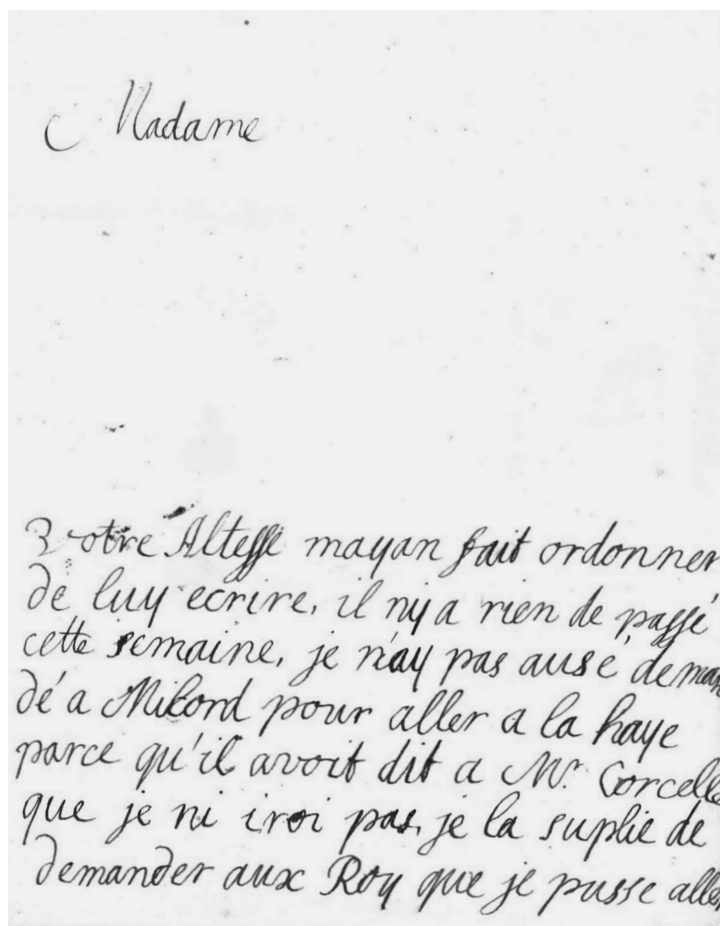 Madame
Votre Altesse mayan fait ordonner
de luy ecrire, il ny a rien de passé
cette semaine, je n'ay pas ausé deman
dé a Milord pour aller a la haye
parce qu'il avoit dit a Mr. Corcelle
que je ni iroi pas, je la suplie de
demander aux Roy que je pusse aller